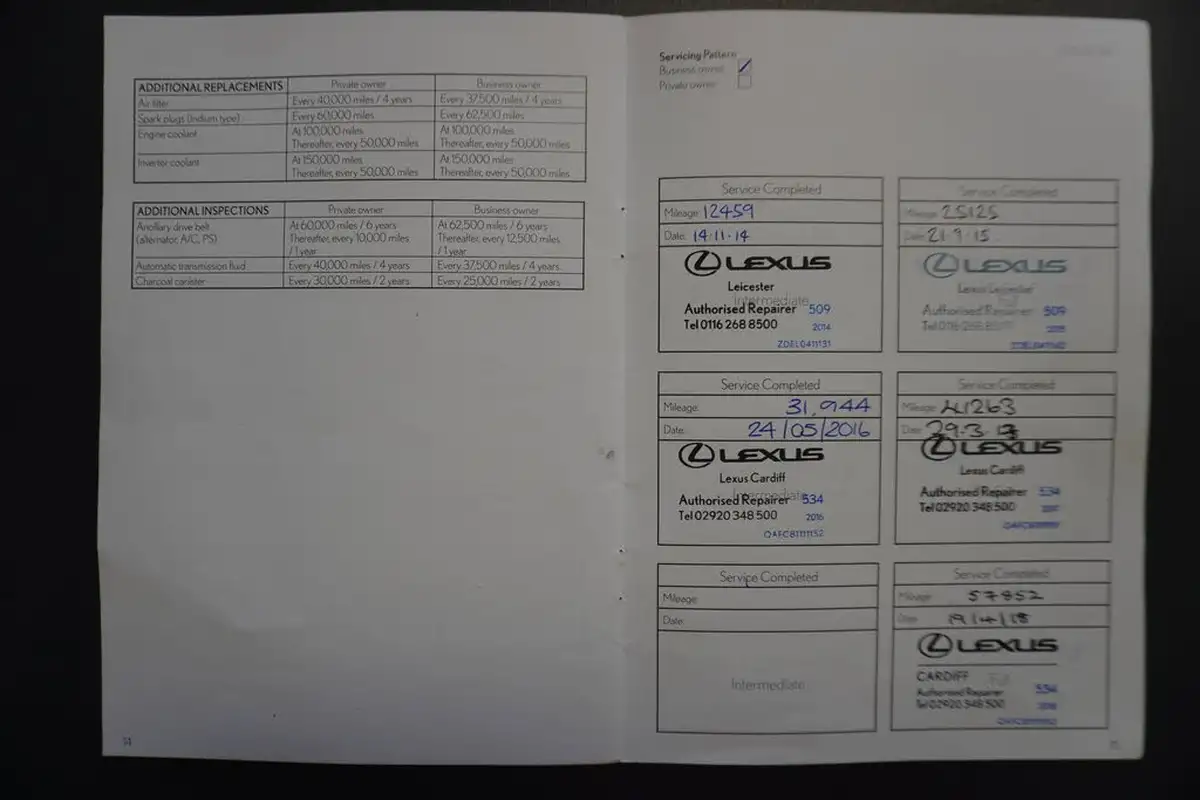 ADDITIONAL REPLACEMENTS Private owner Business owner
Air filter Every 40,000 miles / 4 years Every 37,500 miles / 4 years
Spark plugs (Iridium type) Every 60,000 miles Every 62,500 miles
Engine coolant At 100,000 miles At 100,000 miles
Thereafter, every 50,000 miles Thereafter, every 50,000 miles
Inverter coolant At 150,000 miles At 150,000 miles
Thereafter, every 50,000 miles Thereafter, every 50,000 miles
ADDITIONAL INSPECTIONS Private owner Business owner
Ancillary drive belt At 60,000 miles / 6 years At 62,500 miles / 6 years
(alternator, A/C, PS) Thereafter, every 10,000 miles Thereafter, every 12,500 miles
/ 1 year / 1 year
Automatic transmission fluid Every 40,000 miles / 4 years Every 37,500 miles / 4 years
Charcoal canister Every 30,000 miles / 2 years Every 25,000 miles / 2 years
14
Servicing Pattern
Business owner
Private owner
Service Completed
Mileage: 12459
Date: 14·11·14
LEXUS
Leicester
Intermediate
Authorised Repairer 509
Tel 0116 268 8500 2014
ZDEL0411131
Service Completed
Mileage: 25125
Date: 21·9·15
LEXUS
Lexus Leicester
Full
Authorised Repairer 509
Tel 0116 268 2015
Service Completed
Mileage: 31,944
Date: 24/05/2016
LEXUS
Lexus Cardiff
Intermediate
Authorised Repairer 534
Tel 02920 348 500 2016
Service Completed
Mileage: 41263
Date: 29·3·17
LEXUS
Lexus Cardiff
Authorised Repairer 534
Tel 02920 348 500 2017
Service Completed
Mileage:
Date:
Intermediate
Service Completed
Mileage: 57852
Date: 19/4/18
LEXUS
CARDIFF
Full
Authorised Repairer 534
Tel 02920 348 500 2018